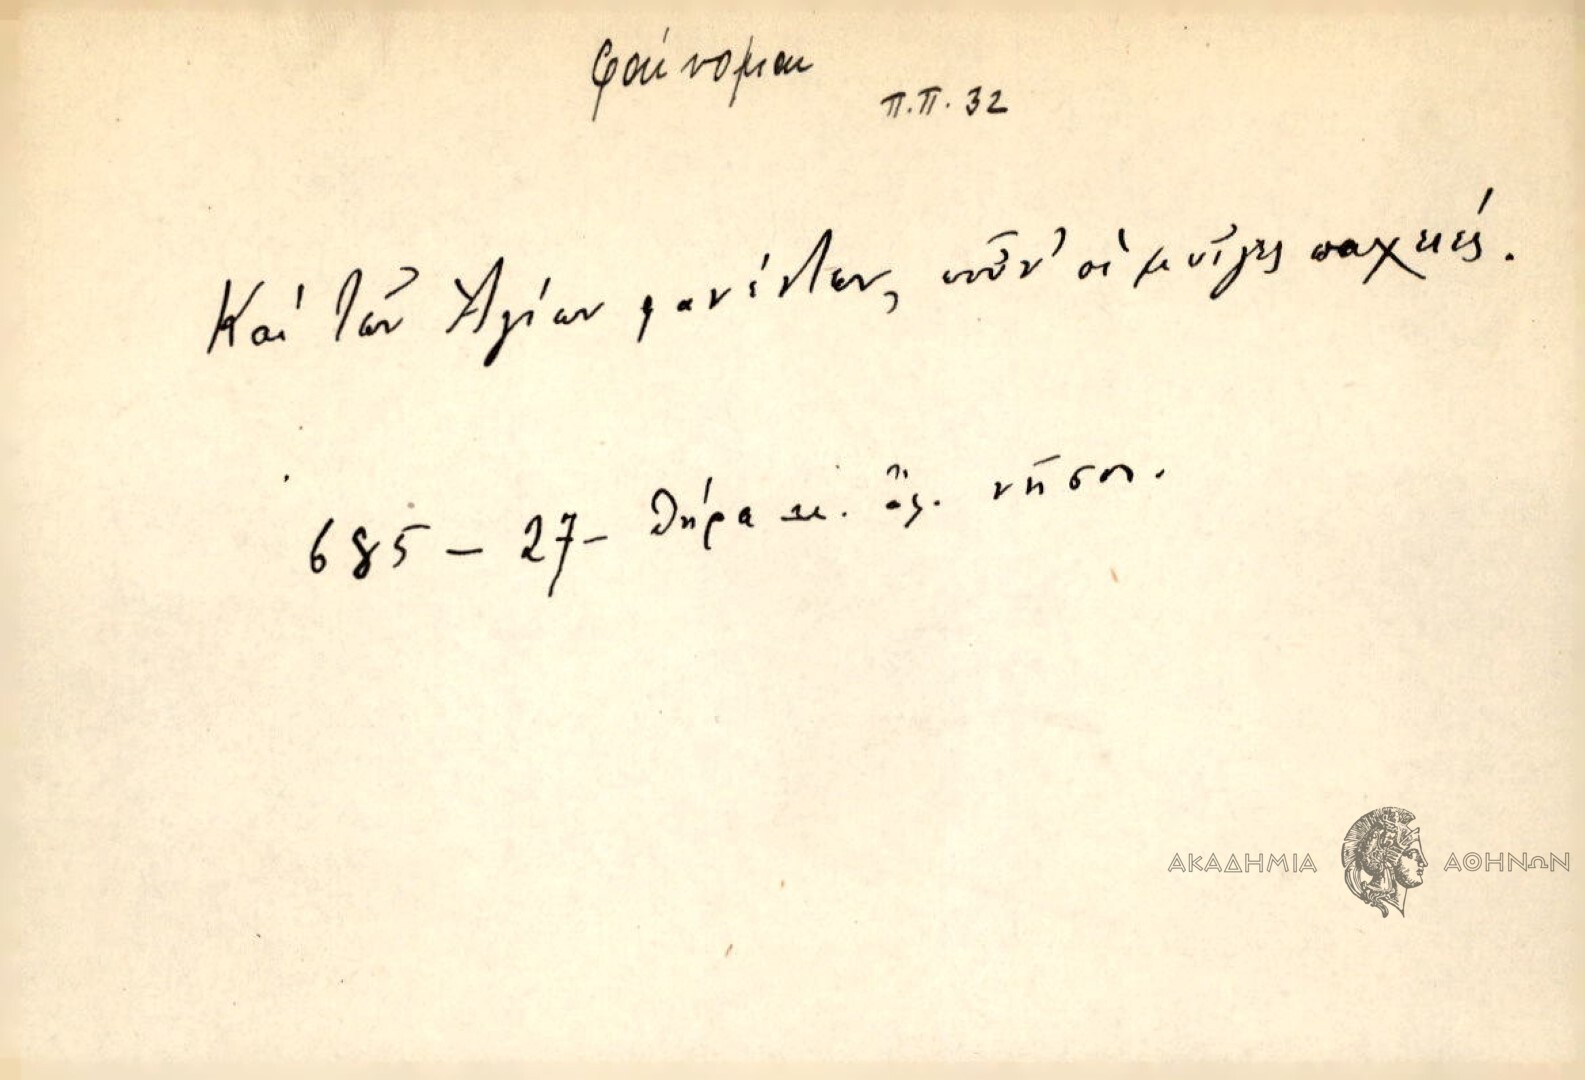 φαίνομαι
Π.Π. 32
Καί τῶν Ἁγίων φανέντων, ποῦν' οἱ μυῖγες παχειές.
685 – 27 – Θήρα κ. ἄ. νῆσοι.
ΑΚΑΔΗΜΙΑ ΑΘΗΝΩΝ